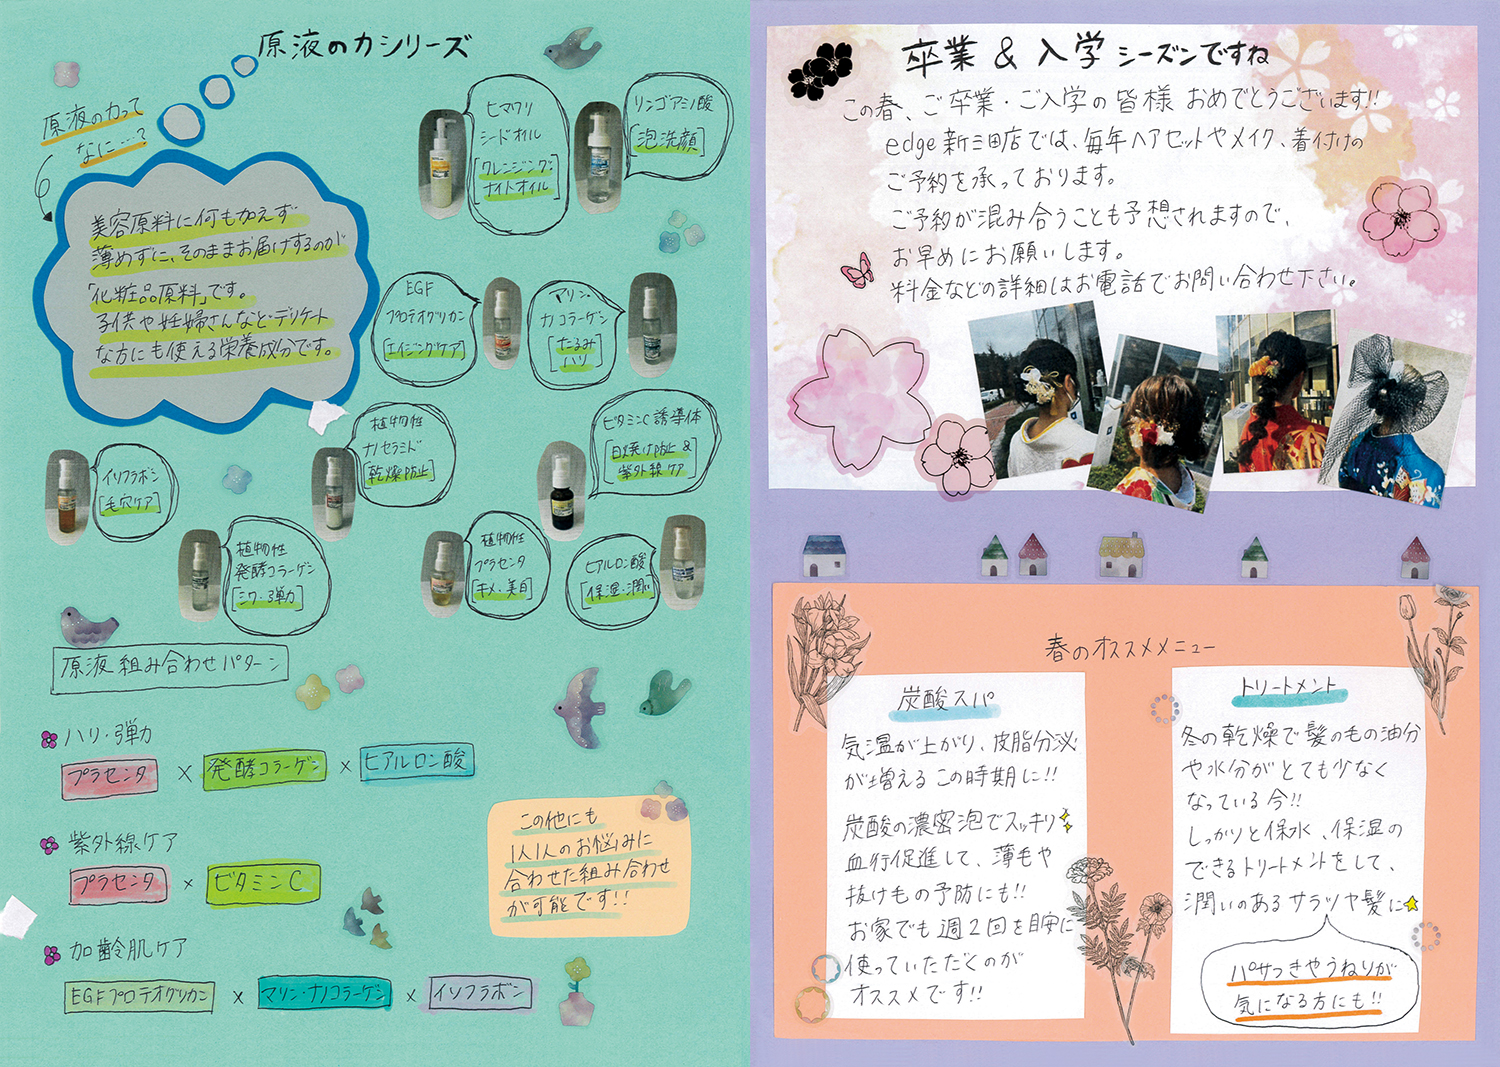 原液の力シリーズ
原液の力って
なに…?
美容原料に何も加えず
薄めずに、そのままお届けするのが
「化粧品原料」です。
子供や妊婦さんなどデリケート
な方にも使える栄養成分です。
ヒマワリ
シードオイル
[クレンジング・
ナイトオイル]
リンゴアミノ酸
[泡洗顔]
EGF
プロテオグリカン
[エイジングケア]
マリン・
ナノコラーゲン
[たるみ
ハリ]
イソフラボン
[毛穴ケア]
植物性
ナノセラミド
[乾燥防止]
ビタミンC誘導体
[日焼け防止&
紫外線ケア]
植物性
発酵コラーゲン
[シワ・弾力]
植物性
プラセンタ
[キメ・美白]
ヒアルロン酸
[保湿・潤い]
原液組み合わせパターン
ハリ・弾力
プラセンタ × 発酵コラーゲン × ヒアルロン酸
紫外線ケア
プラセンタ × ビタミンC
加齢肌ケア
EGFプロテオグリカン × マリン・ナノコラーゲン × イソフラボン
この他にも
1人1人のお悩みに
合わせた組み合わせ
が可能です!!
卒業 & 入学 シーズンですね
この春、ご卒業・ご入学の皆様 おめでとうございます!!
edge新三田店では、毎年ヘアセットやメイク、着付けの
ご予約を承っております。
ご予約が混み合うことも予想されますので、
お早めにお願いします。
料金などの詳細はお電話でお問い合わせ下さい。
春のオススメメニュー
炭酸スパ
気温が上がり、皮脂分泌
が増えるこの時期に!!
炭酸の濃密泡でスッキリ
血行促進して、薄毛や
抜けもの予防にも!!
お家でも週2回を目安に
使っていただくのが
オススメです!!
トリートメント
冬の乾燥で髪のもの油分
や水分がとても少なく
なっている今!!
しっかりと保水、保湿の
できるトリートメントをして、
潤いのあるサラツヤ髪に
パサつきやうねりが
気になる方にも!!